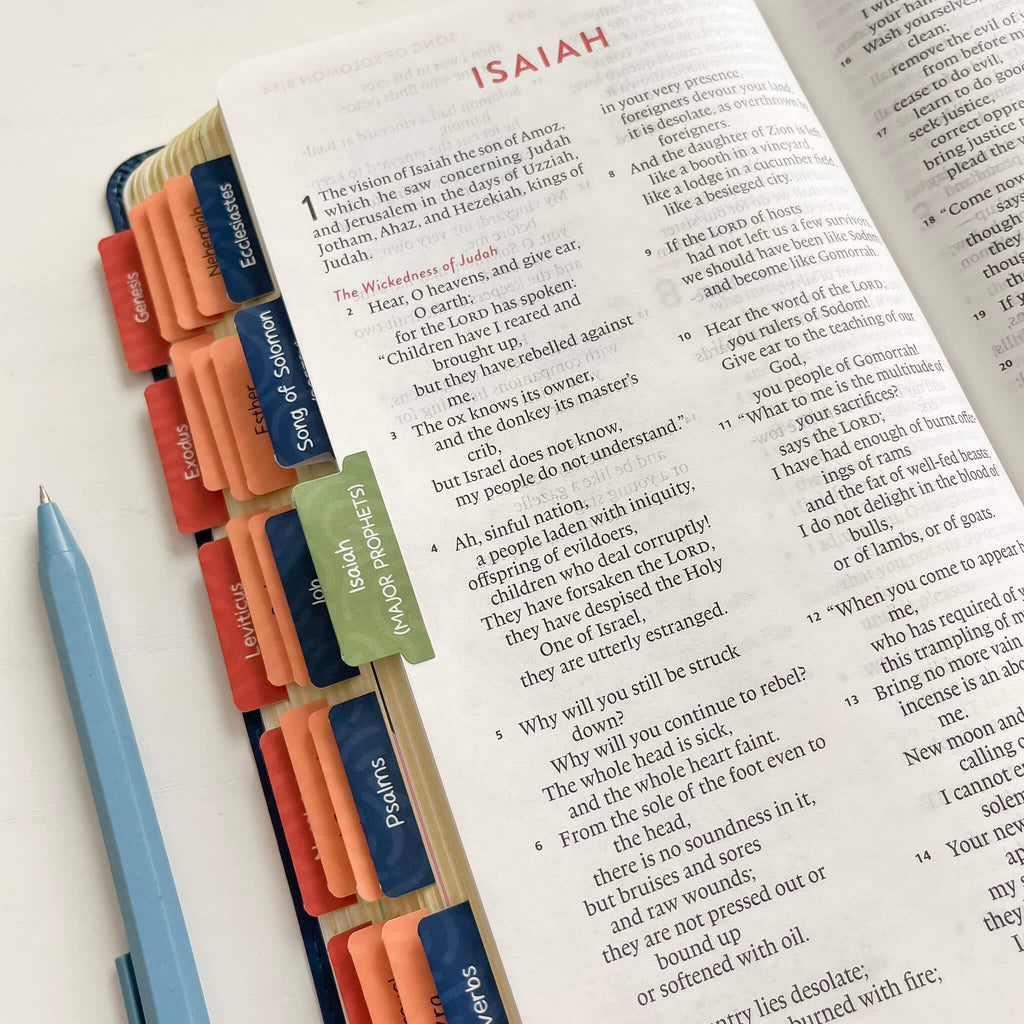 ISAIAH
1 The vision of Isaiah the son of Amoz,
which he saw concerning Judah
and Jerusalem in the days of Uzziah,
Jotham, Ahaz, and Hezekiah, kings of
Judah.
The Wickedness of Judah
2 Hear, O heavens, and give ear,
O earth;
for the LORD has spoken:
“Children have I reared and
brought up,
but they have rebelled against
me.
3 The ox knows its owner,
and the donkey its master’s
crib,
but Israel does not know,
my people do not understand.”
4 Ah, sinful nation,
a people laden with iniquity,
offspring of evildoers,
children who deal corruptly!
They have forsaken the LORD,
they have despised the Holy
One of Israel,
they are utterly estranged.
5 Why will you still be struck
down?
Why will you continue to rebel?
The whole head is sick,
and the whole heart faint.
6 From the sole of the foot even to
the head,
there is no soundness in it,
but bruises and sores
and raw wounds;
they are not pressed out or
bound up
or softened with oil.
lies desolate;
burned with fire;
in your very presence
foreigners devour your land;
it is desolate, as overthrown by
foreigners.
8 And the daughter of Zion is left
like a booth in a vineyard,
like a lodge in a cucumber field,
like a besieged city.
9 If the LORD of hosts
had not left us a few survivors,
we should have been like Sodom,
and become like Gomorrah.
10 Hear the word of the LORD,
you rulers of Sodom!
Give ear to the teaching of our
God,
you people of Gomorrah!
11 “What to me is the multitude of
your sacrifices?
says the LORD;
I have had enough of burnt offer-
ings of rams
and the fat of well-fed beasts;
I do not delight in the blood of
bulls,
or of lambs, or of goats.
12 “When you come to appear
me,
who has required of
this trampling of
13 Bring no more vain
incense is an
me.
New moon and
calling
I cannot
14 Your new
my
they
I
16 Wash yourselves;
clean;
remove the evil of
from before
cease to do evil,
17 learn to do good;
seek justice,
correct
bring justice
plead the
18 “Come now,
says
though
they
though
they
19 If
20
Genesis
Exodus
Leviticus
Nehemiah
Esther
Job
Ecclesiastes
Song of Solomon
Isaiah
(MAJOR PROPHETS)
Psalms